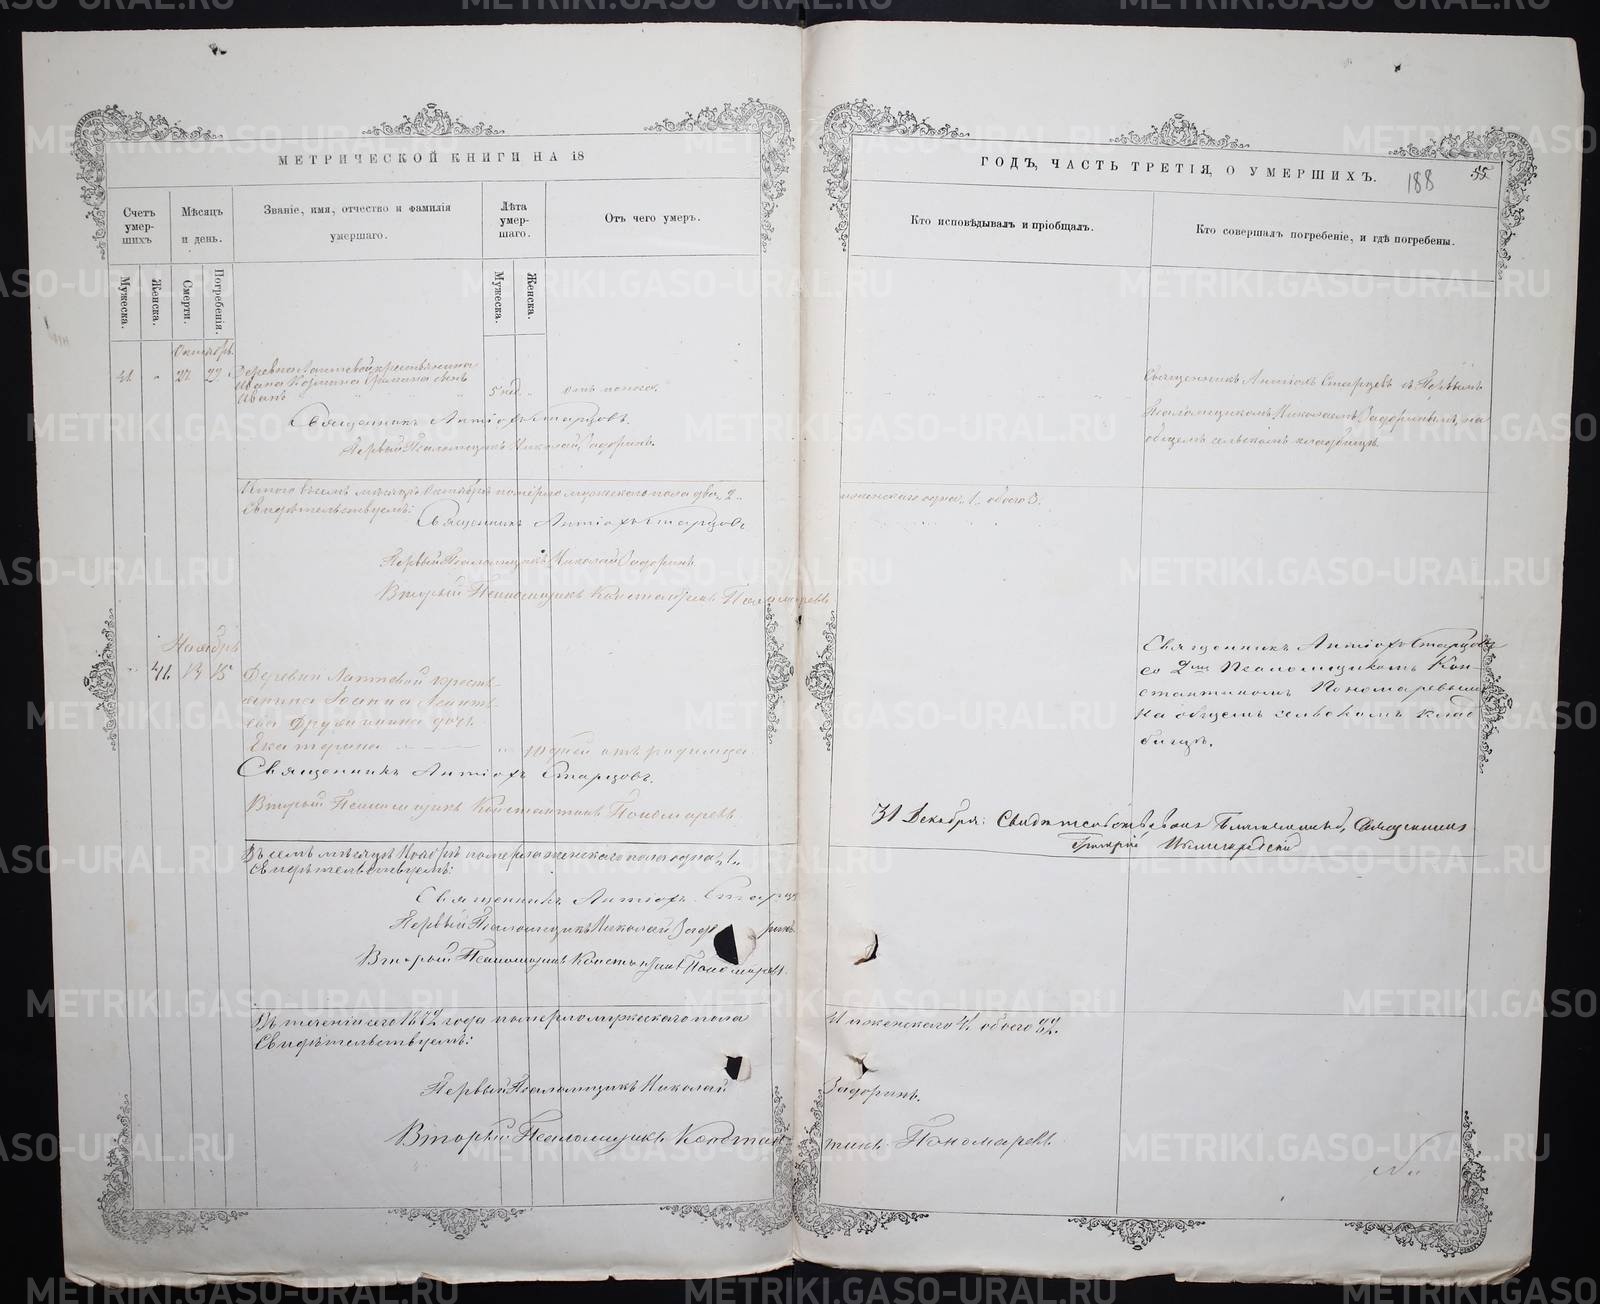 МЕТРИЧЕСКОЙ КНИГИ НА 18
ГОДЪ, ЧАСТЬ ТРЕТІЯ, О УМЕРШИХЪ.
188
55
Счетъ умер-шихъ
Мѣсяцъ и день.
Званіе, имя, отчество и фамилія умершаго.
Лѣта умер-шаго.
Отъ чего умеръ.
Кто исповѣдывалъ и пріобщалъ.
Кто совершалъ погребеніе, и гдѣ погребены.
Мужеска.
Женска.
Смерти.
Погребенія.
Мужеска.
Женска.
Октябрь
41. " 27 29 Деревни Лаптевой крестьянина
Ивана сынъ
Иванъ 5 нед. отъ поноса.
Священникъ Антіохъ Старцовъ.
Первый Псаломщикъ Николай Задоринъ.
Священникъ Антіохъ Старцевъ съ Первымъ
Псаломщикомъ Николаемъ Задоринымъ, на
общемъ сельскомъ кладбищѣ.
Итого въ семъ мѣсяцѣ Октябрѣ померло мужескаго пола два 2.
и женскаго одна 1. обоего 3.
Свидѣтельствуемъ:
Священникъ Антіохъ Старцовъ
Первый Псаломщикъ Николай Задоринъ.
Второй Псаломщикъ Константинъ Пономаревъ
Ноябрь
41. 13 15 Деревни Лаптевой кресть-
янина Іоанна
Дружинина дочь
Екатерина дней отъ родимца.
Священникъ Антіохъ Старцовъ.
Второй Псаломщикъ Константинъ Пономаревъ
Священникъ Антіохъ Старцовъ
со 2мъ Псаломщикомъ Кон-
стантиномъ Пономаревымъ
на общемъ сельскомъ клад
бищѣ.
31 Декабря: Священникъ
Въ семъ мѣсяцѣ Ноябрѣ померла женскаго пола одна 1.
Свидѣтельствуемъ:
Священникъ Антіохъ Старцо
Первый Псаломщикъ Николай Задоринъ
Второй Псаломщикъ Константинъ Пономаревъ.
Въ теченіи сего 1872 года померло мужескаго пола
и женскаго 41. обоего
Свидѣтельствуемъ:
Первый Псаломщикъ Николай
Задоринъ.
Второй Псаломщикъ Констан
тинъ Пономаревъ
METRIKI.GASO-URAL.RU